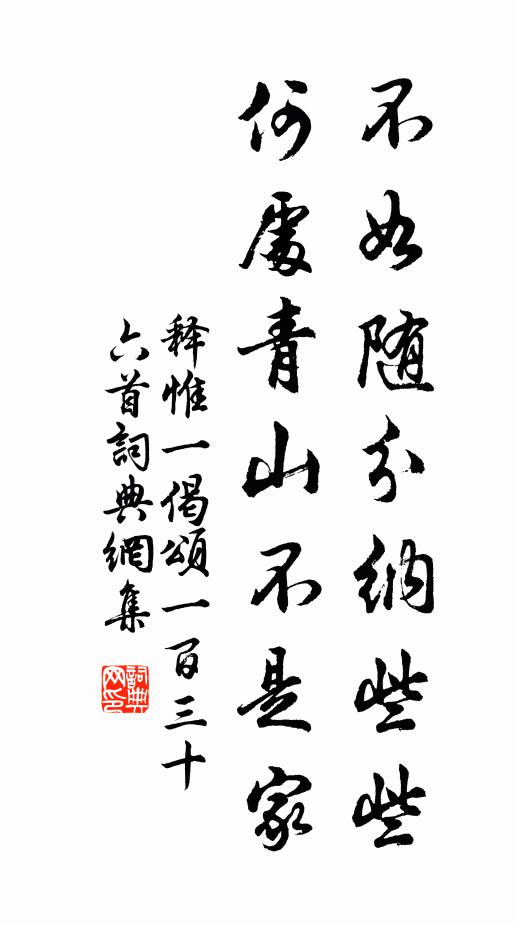 不如随分納些些
何處青山不是家
释惟一偈頌一百三十
六首詞典網集
詞典網印